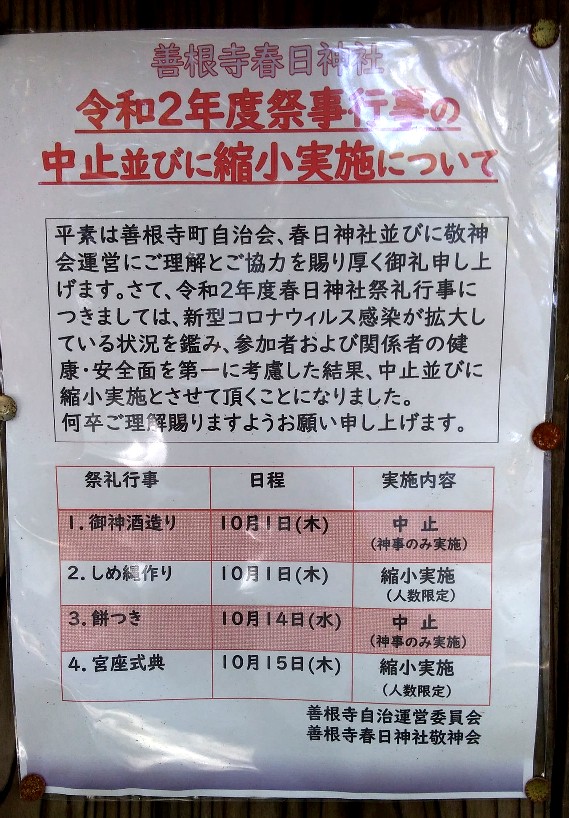 善根寺春日神社
令和2年度祭事行事の
中止並びに縮小実施について
平素は善根寺町自治会、春日神社並びに敬神
会運営にご理解とご協力を賜り厚く御礼申し上
げます。さて、令和2年度春日神社祭礼行事に
つきましては、新型コロナウィルス感染が拡大し
ている状況を鑑み、参加者および関係者の健
康・安全面を第一に考慮した結果、中止並びに
縮小実施とさせて頂くことになりました。
何卒ご理解賜りますようお願い申し上げます。
祭礼行事 日程 実施内容
1. 御神酒造り 10月1日(木) 中 止
(神事のみ実施)
2. しめ縄作り 10月1日(木) 縮小実施
(人数限定)
3. 餅つき 10月14日(水) 中 止
(神事のみ実施)
4. 宮座式典 10月15日(木) 縮小実施
(人数限定)
善根寺自治運営委員会
善根寺春日神社敬神会